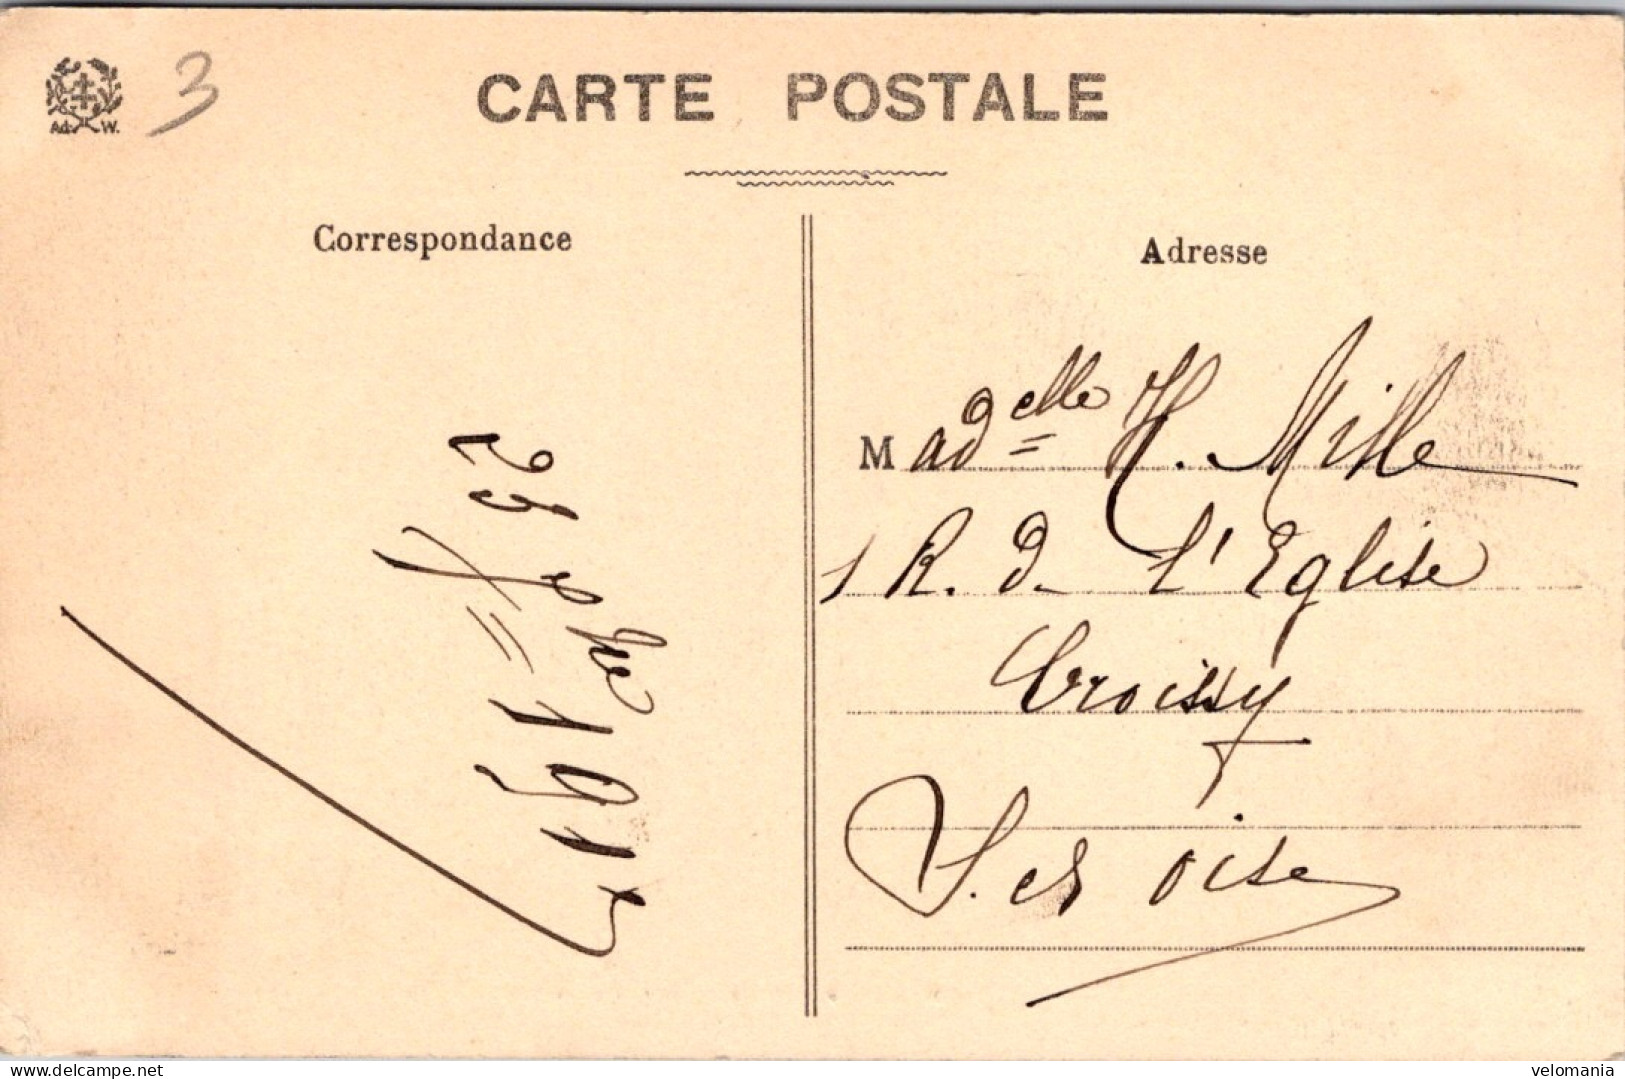 3
Ad. W.
CARTE POSTALE
Correspondance
Adresse
25 7bre
1915
Madelle H. Mille
1 R. d. L'Eglise
Croissy
S. et Oise
delcampe.net
velomania